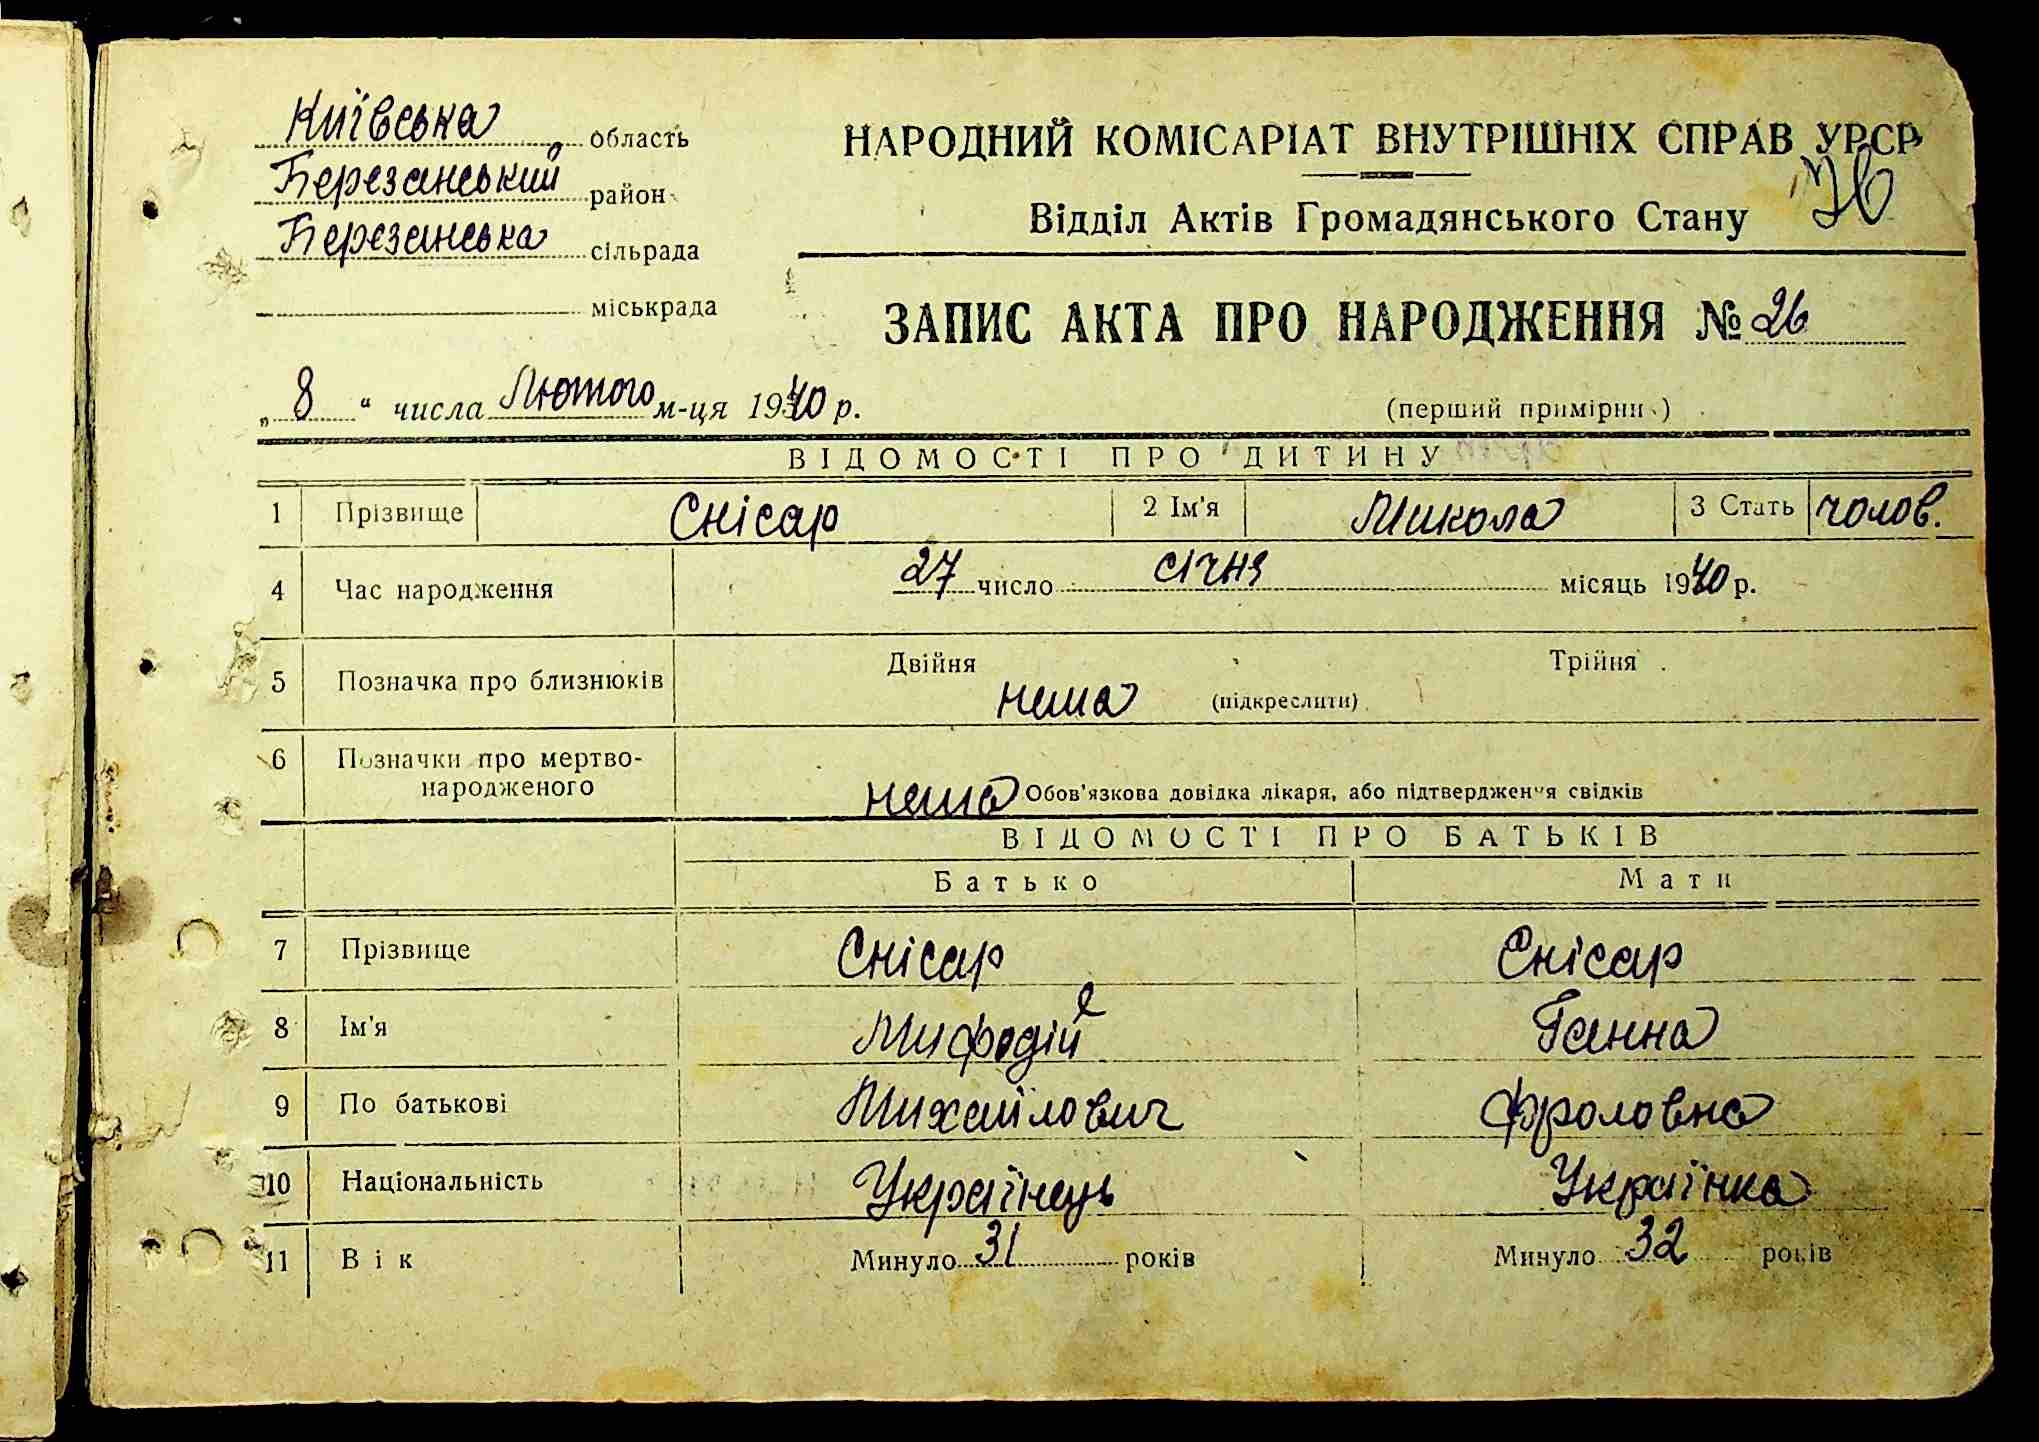 Київська область
Березанський район
Березанська сільрада
міськрада
НАРОДНИЙ КОМІСАРІАТ ВНУТРІШНІХ СПРАВ УРСР
Відділ Актів Громадянського Стану
ЗАПИС АКТА ПРО НАРОДЖЕННЯ № 26
„ 8 “ числа Лютого м-ця 1940 р.
(перший примірник)
ВІДОМОСТІ ПРО ДИТИНУ
1 Прізвище Снісар 2 Ім'я Микола 3 Стать чолов.
4 Час народження 27 число січня місяць 1940 р.
5 Позначка про близнюків Двійня Трійня
нема (підкреслити)
6 Позначки про мертво-
народженого нема Обов'язкова довідка лікаря, або підтвердження свідків
ВІДОМОСТІ ПРО БАТЬКІВ
Батько Мати
7 Прізвище Снісар Снісар
8 Ім'я Мифодій Ганна
9 По батькові Михайлович Фроловна
10 Національність Українець Українка
11 Вік Минуло 31 років Минуло 32 років